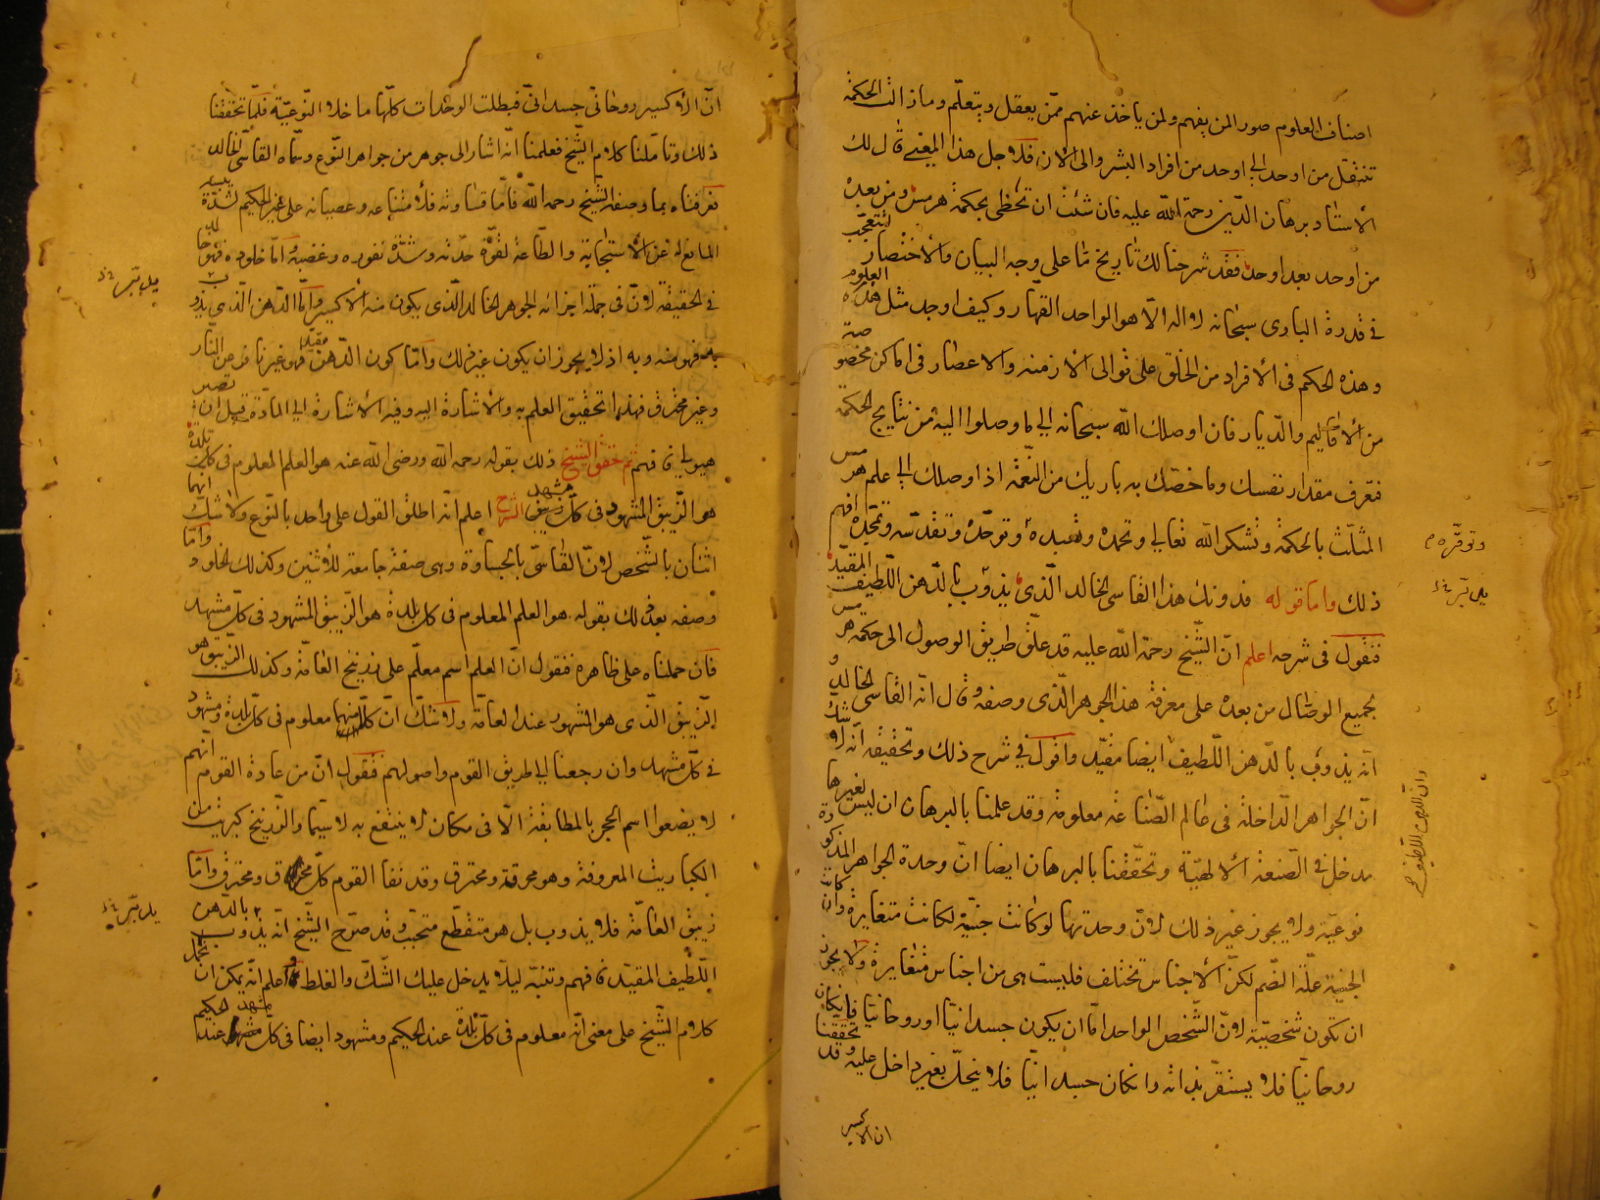 اصناف العلوم صور المن يفهم ولمن ياخذ عنهم ممّن يعقل ويتعلّم وما ذالت الحكمة
تنتقل من اوحد الي اوحد من افراد البشر والى الان فلاجل هذا المعنى قال لك
الاستاد برهان الدّين رحمة الله عليه فان شئت ان تحظى بحكمة هرمس ومن بعده
من اوحد بعد اوحد فقد شرحنا لك تاريخ ما على وجه البيان والاختصار لتتعجّب
فى قدرة البارى سبحانه لا اله الّا هو الواحد القهّار وكيف اوجد مثل هذه العلوم
وهذه الحكم فى الافراد من الخلق على توالى الازمنه والاعصار فى اماكن مخصوصة
من الاقاليم والدّيار فان اوصلك الله سبحانه الي ما وصلوا اليه من نتايج الحكمة
فتعرف مقدار نفسك وما خصّك به باريك من النّعمة اذا اوصلك الي علم هرمس
المثلّث بالحكمة وتشكر الله تعالي وتحمده وتعبده وتوحّده وتقدّسه وتمجّده افهم
وتوقّره م
ذلك واما قوله فدونك هذا القاسى الخالد الّذى يذوب بالدّهن اللّطيف المقيّد
فنقول فى شرحه اعلم انّ الشّيخ رحمة الله عليه قد علّق طريق الوصول الى حكمة هرمس
بجميع الوصّال من بعده على معرفة هذ الجوهر الّذى وصفه وقال انّه القاسى الخالد و
انه يذوب بالدّهن اللّطيف ايضا مقيّد واقول في شرح ذلك وتحقيقه انّه لا شكّ
وانّ الدهن اللطيف م
انّ الجواهر الدّاخلة فى عالم الصّناعة معلومة وقد علمنا بالبرهان ان ليس لغيرها
مدخل فى الصّنعة الالهيّة وتحقّقنا بالبرهان ايضا انّ وحدة الجواهر المذكورة
نوعيّة ولا يجوز غير ذلك لانّ وحدتها لو كانت جنسيّة لكانت متغايرة وان كانت
الجنسية علّة الضّم لكنّ الاجناس تختلف فليست هى من اجناس متغايرة ولا يجوز
ان تكون شخصيّة لانّ الشّخص الواحد امّا ان يكون جسدانيّا او روحانيّا فان كان
روحانيّا فلا يستقرّ بذاته وان كان جسدانيّا فلا ينحلّ بغير داخل عليه وقد تحقّقنا
ان الاكسير
انّ الاكسير روحانىّ جسدانىّ فبطلت الوحدات كلّها ما خلا النّوعيّة فلمّا تحقّقنا
ذلك وتاملنا كلام الشّيخ فعلمنا انّه اشار الى جوهر من جواهر النّوع وسمّاه القاسى الخالد
فعرفناه بما وصفه الشّيخ رحمه الله فامّا قساوته فلامتناعه وعصيانه على غير الحكيم لشدّة يبسه
المانع له عن الاستجابة والطّاعة لقوّة حدّته وشدّة نفوره وغضبه وامّا خلوده فهو خالد
فى الحقيقة لانّ فى جملة اجزائه الجوهر الخالد الّذى يكون منه الاكسير وامّا الدّهن الّذى يذوب
به فهو منه وبه اذ لا يجوز ان يكون غير ذلك وامّا كون الدّهن مقيّدا فهو غير نافر من النّار
وغير محترق فهذا تحقيق العلم به والاشارة اليه وفيه الاشارة الي المادّة قبل ان تصير
هيولي فافهم ثم حقق الشيخ ذلك بقوله رحمه الله ورضى الله عنه هو العلم المعلوم فى كل بلدة
هو الزّيبق المشهود فى كلّ مشهد الشرح اعلم انّه اطلق القول على واحد بالنّوع ولا شكّ انّهما
اثنان بالشّخص لانّ القاسى بالجساوة وهى صفة جامعة للاثنين وكذلك الخلود وامّا
وصفه بعد ذلك بقوله هو العلم المعلوم فى كل بلدة هو الزّيبق المشهود فى كلّ مشهد
فان حملناه على ظاهره فنقول انّ العلم اسم معلّم على زرنيخ العامّة وكذلك الزّيبق هو
الزّيبق الّذى هو المشهود عند العامّة ولا شكّ انّ كلّا منهما معلوم فى كلّ بلدة ومشهود
فى كلّ مشهد وان رجعنا الي طريق القوم واصولهم فنقول انّ من عادة القوم انّهم
لا يضعوا اسم الحجر بالمطابقة الّا فى مكان لا ينتفع به لا سيّما والزّرنيخ كبريت من
الكباريت المعروفة وهو محرقة ومحترق وقد نفا القوم كلّ محرق ومحترق وامّا
زيبق العامّة فلا يذوب بل هو متقطّع متحبّب وقد صرّح الشّيخ انّه يذوب بالدّهن
اللّطيف المقيّد فافهم وتنبّه ليلا يدخل عليك الشّكّ والغلط واعلم انّه يمكن ان نحمل
كلام الشّيخ على معنى انّه معلوم فى كلّ بلدة عند الحكيم ومشهود ايضا فى كلّ مشهد عند الحكيم